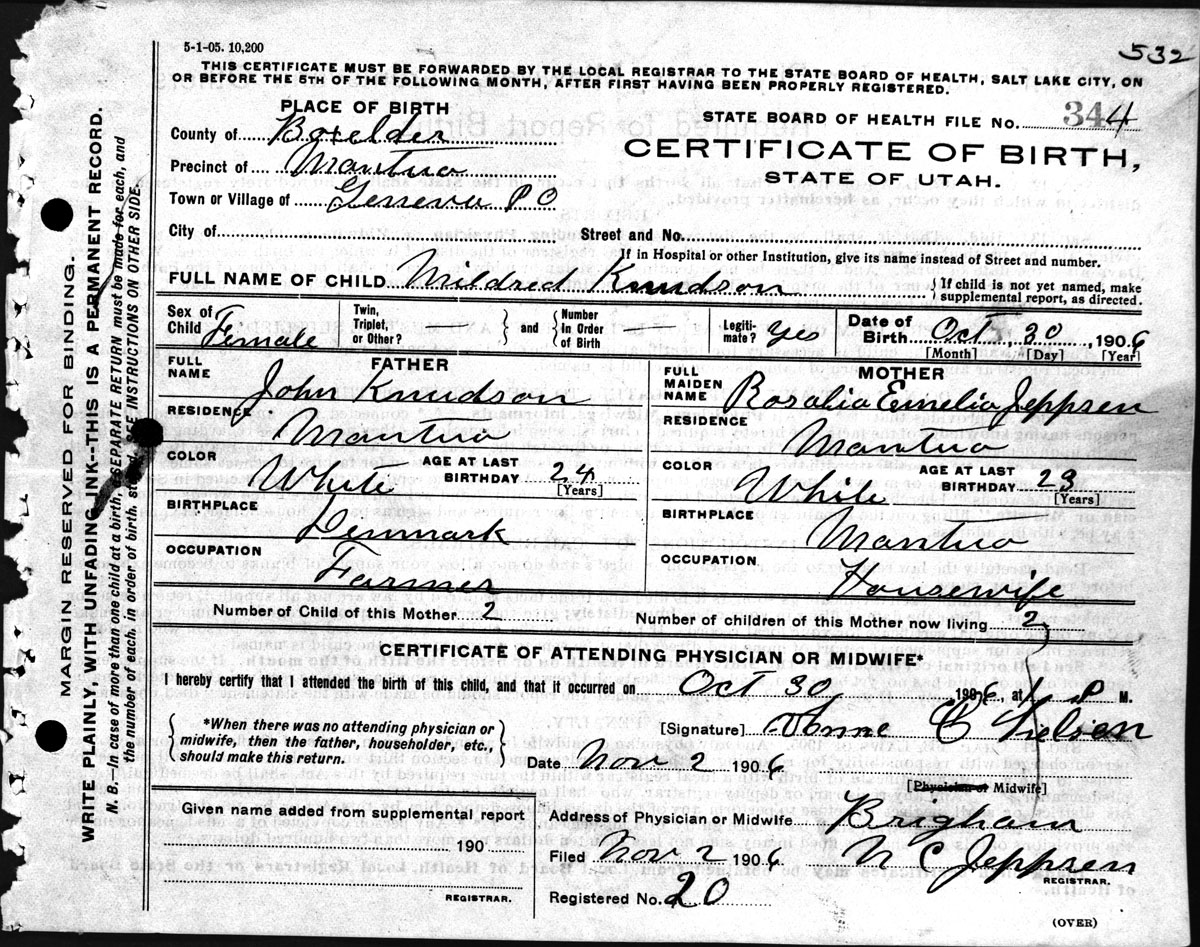 5-1-05. 10,200
532
THIS CERTIFICATE MUST BE FORWARDED BY THE LOCAL REGISTRAR TO THE STATE BOARD OF HEALTH, SALT LAKE CITY, ON
OR BEFORE THE 5TH OF THE FOLLOWING MONTH, AFTER FIRST HAVING BEEN PROPERLY REGISTERED.
PLACE OF BIRTH
County of Boxelder
Precinct of Mantua
Town or Village of Geneva P O
STATE BOARD OF HEALTH FILE No. 344
CERTIFICATE OF BIRTH,
STATE OF UTAH.
City of Street and No.
If in Hospital or other Institution, give its name instead of Street and number.
FULL NAME OF CHILD Mildred Knudson { If child is not yet named, make supplemental report, as directed.
Sex of Child Female Twin, Triplet, or Other? } and { Number In Order of Birth Legiti- mate? Yes Date of Birth Oct 30, 1906
[Month] [Day] [Year]
FULL NAME FATHER
John Knudson
RESIDENCE
Mantua
COLOR White AGE AT LAST BIRTHDAY 24
[Years]
BIRTHPLACE
Denmark
OCCUPATION
Farmer
FULL MAIDEN NAME MOTHER
Rosalia Emelia Jeppsen
RESIDENCE
Mantua
COLOR White AGE AT LAST BIRTHDAY 23
[Years]
BIRTHPLACE
Mantua
OCCUPATION
Housewife
Number of Child of this Mother 2 Number of children of this Mother now living 2
CERTIFICATE OF ATTENDING PHYSICIAN OR MIDWIFE*
I hereby certify that I attended the birth of this child, and that it occurred on Oct 30, 1906, at 1 P M.
{ *When there was no attending physician or
midwife, then the father, householder, etc.,
should make this return. }
[Signature] Anne C Nielsen
Date Nov 2 1906
[Physician or Midwife]
Given name added from supplemental report
190
REGISTRAR.
Address of Physician or Midwife Brigham
Filed Nov 2 1906 N C Jeppsen
REGISTRAR.
Registered No. 20
(OVER)
MARGIN RESERVED FOR BINDING.
WRITE PLAINLY, WITH UNFADING INK--THIS IS A PERMANENT RECORD.
N. B. In case of more than one child at a birth, SEPARATE RETURN must be made for each, and
the number of each, in order of birth, stated. SEE INSTRUCTIONS ON OTHER SIDE.